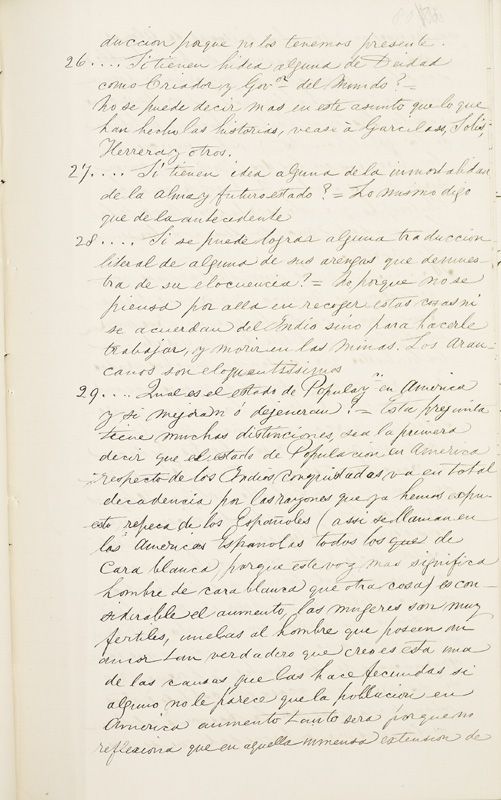 duccion porque ni los tenemos presente.
26.... Si tienen hidea alguna de Deidad
como Criador y Gov.or del Mundo? =
No se puede decir mas en este asunto que lo que
han hecho las historias, vease à Garcilass, Solis,
Herrera y otros.
27.... Si tienen idea alguna de la inmortalidad
de la alma y futuro estado? = Lo mismo digo
que de la antecedente
28.... Si se puede lograr alguna traduccion
literal de alguna de sus arengas que demues-
tra de su elocuencia? = No porque no se
piensa por alla en recoger estas cosas ni
se acuerdan del Indio sino para hacerle
trabajar, y morir en las minas. Los Arau-
canos son eloquentissimos
29.... Qual es el estado de Populay.n en America
y si mejoran ó dejeneran? = Esta pregunta
tiene muchas distinciones, sea la primera
decir que el estado de Populacion en America
respecto de los Indios conquistadas, va en total
decadencia por las razones que ya hemos expu-
esto, repeca de los Españoles (assi se llaman en
las Americas Españolas todos los que de
Cara blanca, porque este voz mas significa
hombre de cara blanca que otra cosa) es con-
siderable el aumento, las mugeres son muy
fertiles, unebas al hombre que poseen un
amor tan verdadero que creo es esta una
de las causas que las hace fecundas si
alguno no le parece que la pollucion en
America aumento tanto sera porque no
reflexiona que en aquella inmensa extension de